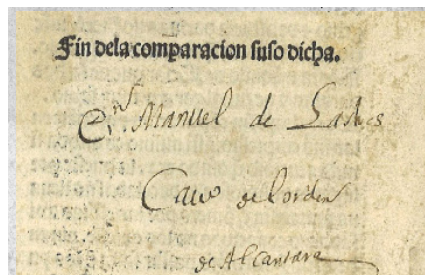 Fin dela comparacion suso dicha.
Manuel de
Cauo de lorden
de Alcantara